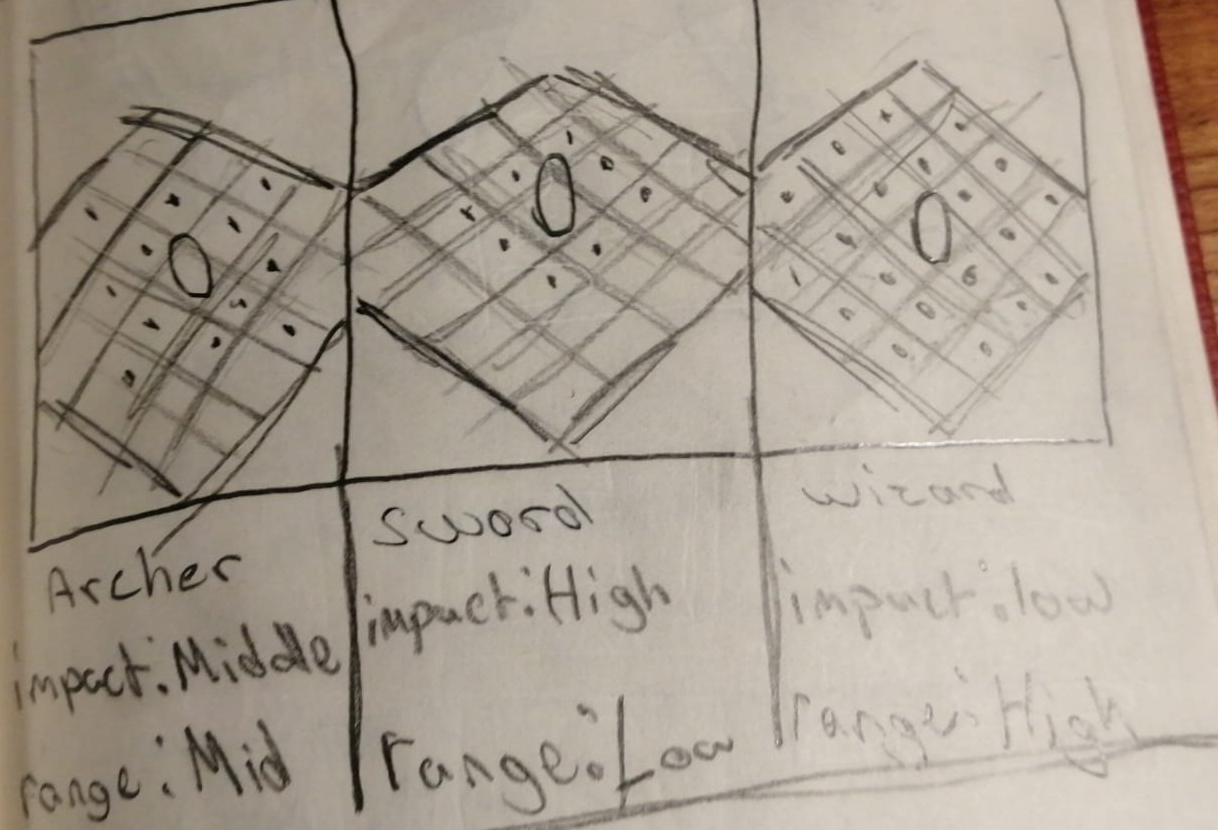 Archer
impact:Middle
range:Mid
Sword
impact:High
range:Low
wizard
impact:low
range:High